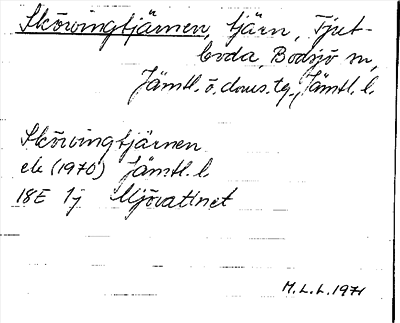 Skörvingtjärnen, tjärn, Fjut-
boda, Bodsjö sn,
Jämtl. ö. doms. tg., Jämtl. l.
Skörvingtjärnen
ek (1970) Jämtl. l
18E 1j Mjövattnet
M.L.L. 1971